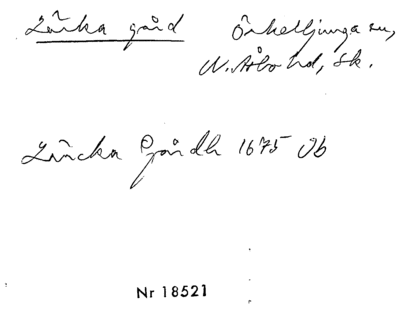 Länka gård Örkelljunga sn,
N. Åsbo hd, Sk.
Läncka Gårdh 1675 Jb
Nr 18521